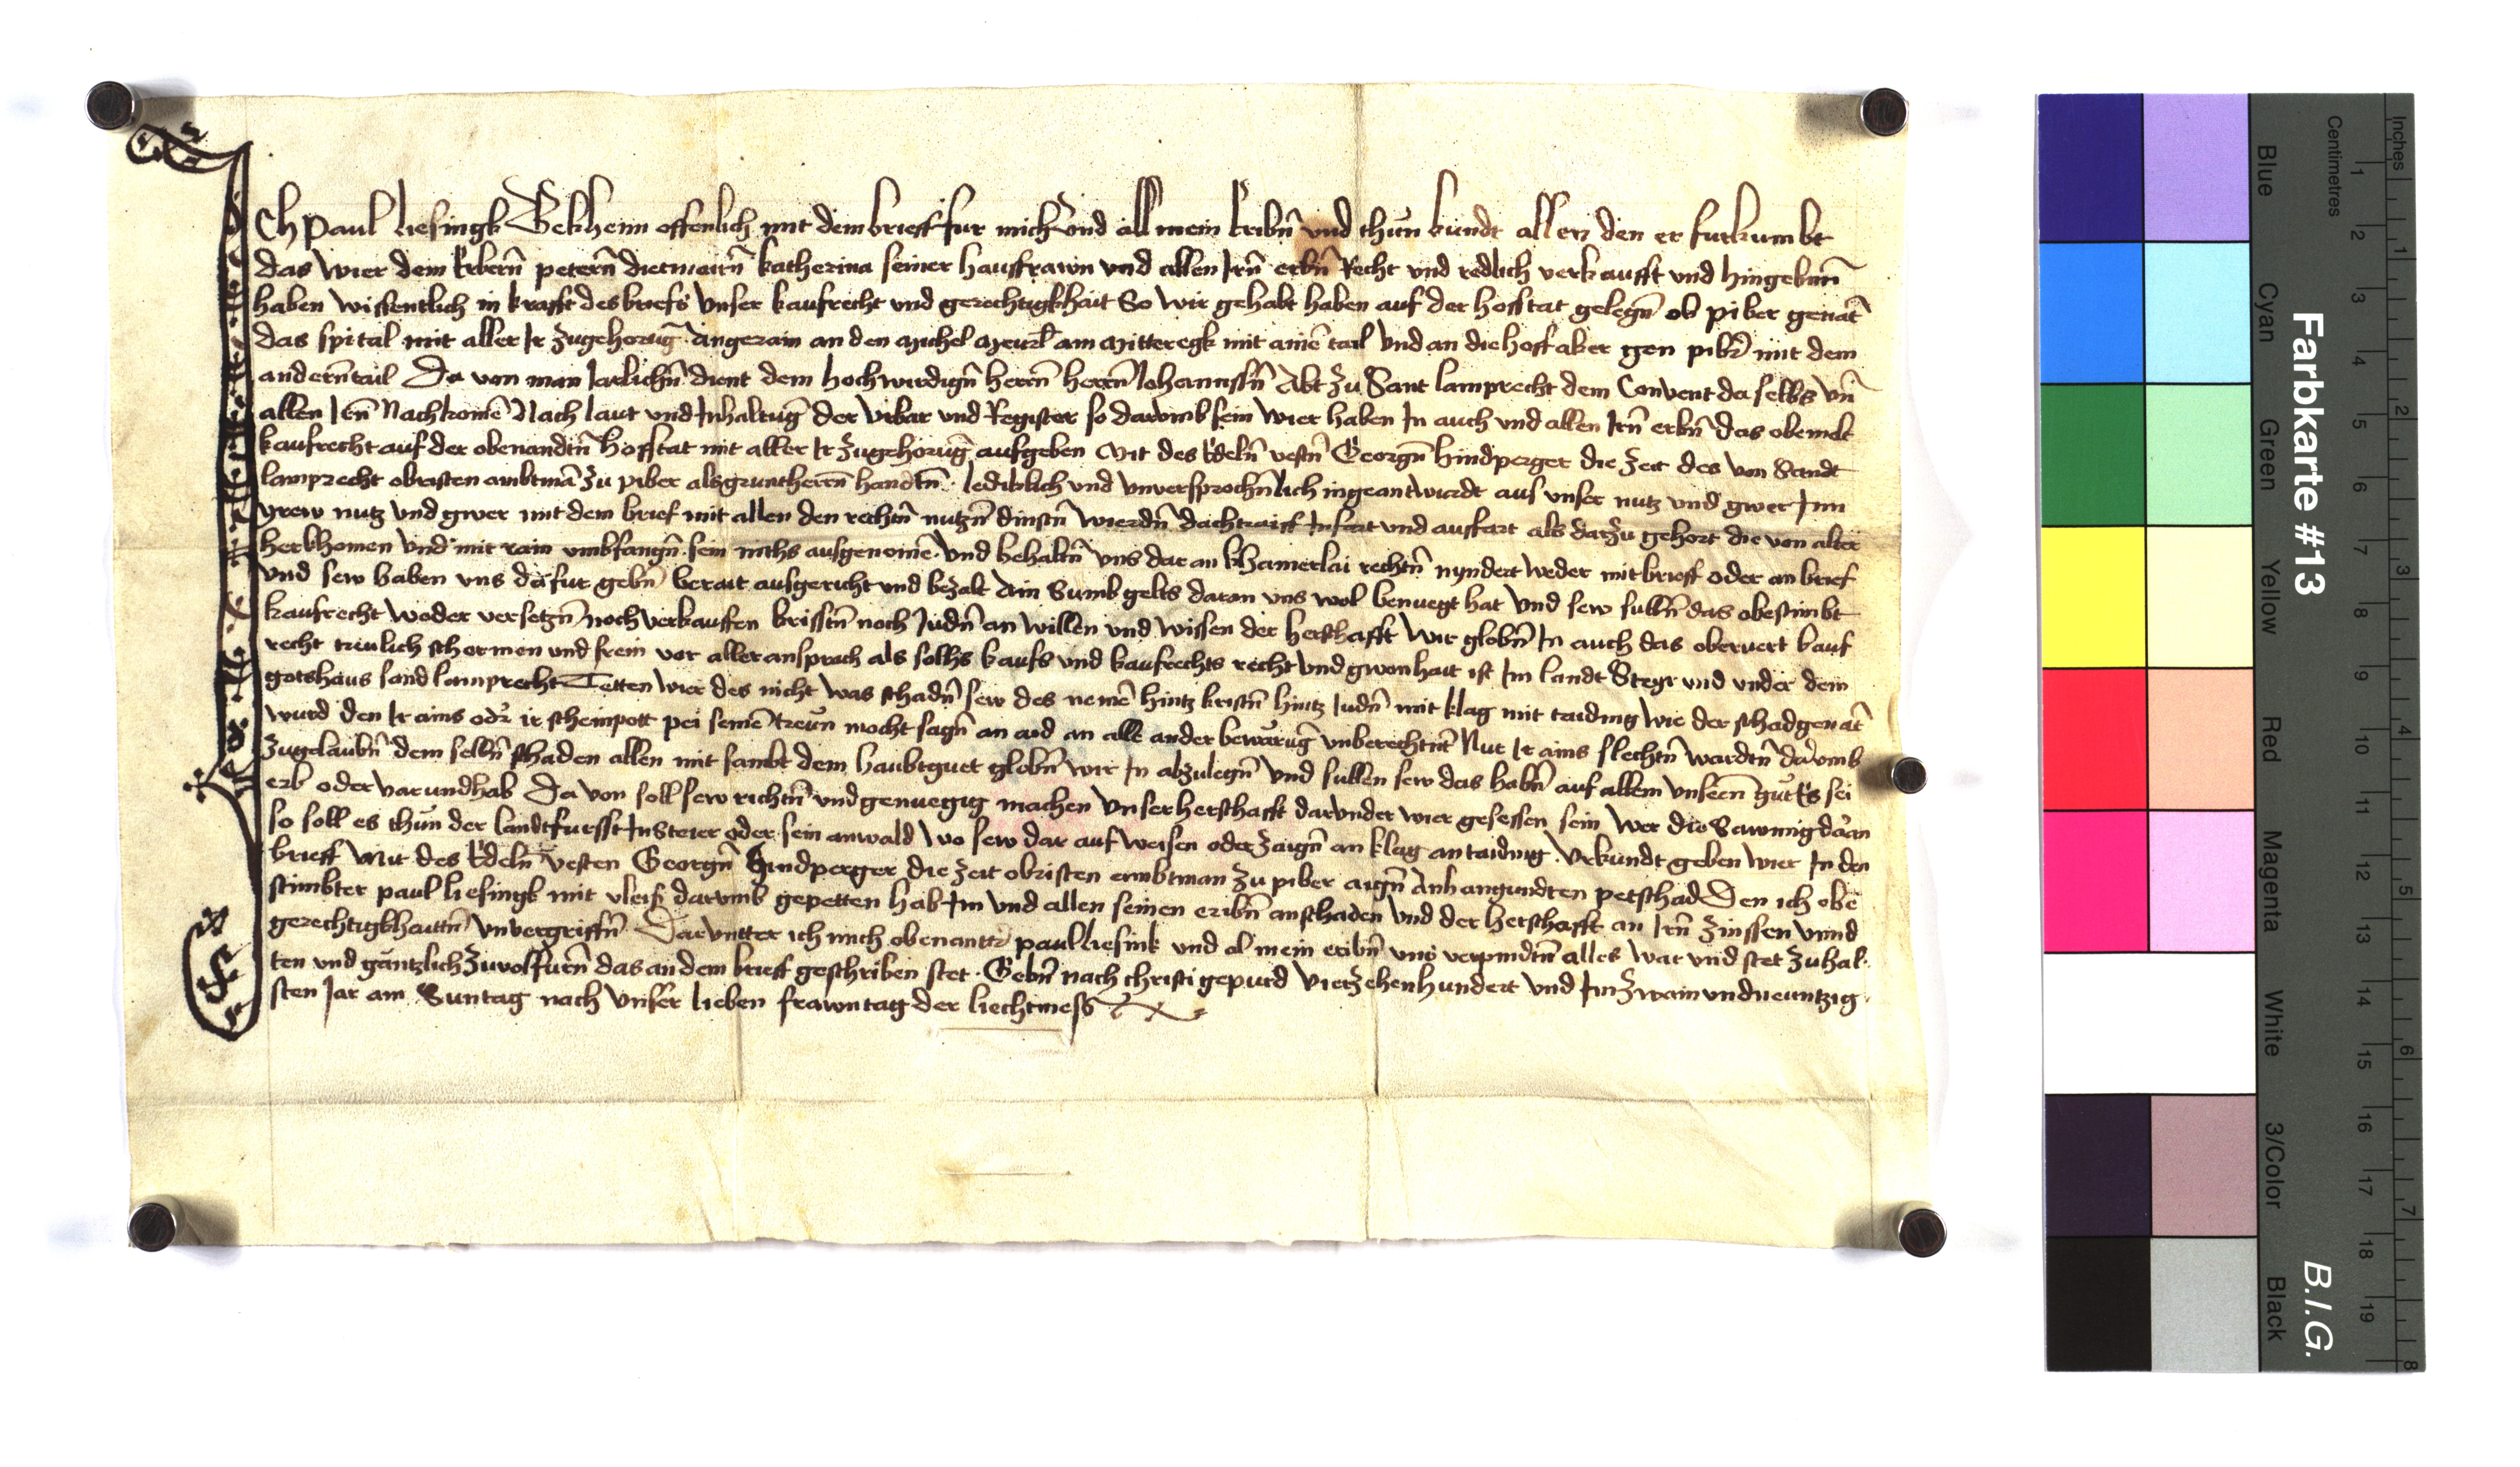 Ich Paul liesingk Bekhenn offenlich mit dem brieff fur mich und all mein Eribn̄ und thun kundt allen den er furkumbt
das wier dem Erbern̄ petern̄ dietmairn̄ katherina seiner hausfrawn und allen Irn̄ erbn̄ Recht und redlich verkaufft und hingebm̄
haben wissentlich in krafft des briefs unser kaufrecht und gerechtigkhait So wir gehabt haben auf der hofstat gelegn̄ ob piber genāt
das spital mit aller Ir zugehorūg angerain an den michel am mitteregk mit ainē tail und an die hoff aker gen pibr̄ mit dem
andern̄ tail Da von man Jarlichn̄ dient dem hochwirdign̄ herrn̄ herrn̄ Johannsn̄ Abt zu Sant lamprecht dem Convent da selbs un̄
allen Irn̄ Nachkomē Nach laut und Inhaltūg der urbar und Register so darumb sein wier haben In auch und allen Irn̄ erbn̄ das obemelt
kaufrecht auf der obenandtn̄ hofstat mit aller Ir zugehorūg aufgeben Mit des Edeln̄ vestn̄ Georgn̄ hindperger die zeit des von Sandt
lamprecht obristen ambtmā zu piber als gruntherrn̄ handtn̄ lediklich und unversprochn̄lich ingeantwurdt aus unser nutz und gwer Inn
yrew nutz und gwer mit dem brief mit allen den rechtn̄ nutzn̄ dinstn̄ wierdn̄ dachtraiff Infart und ausfart als darzu gehort die von alter
herkhomen und mit rain umbfangn̄ sein nichs ausgenomē und behaltn̄ uns dar an khainerlai rechtn̄ nyndert weder mit brieff oder an brief
und sew haben uns dafur gebn̄ berait ausgericht und bezalt Ain Sumb gelts daran uns wol benuegt hat und sew sullen̄ das obestimbt
kaufrecht weder versetzn̄ noch verkauffen kristn̄ noch Judn̄ an willen und wissen der herschafft wir globn̄ In auch das oberuert kauf
recht treulich schermen und frein vor aller ansprach als solhs kaufs und kaufrechts recht und gwonhait ist Im landt Steyr und under dem
gotshaus sand lamprecht Tetten wier des nicht was schadn̄ sew des nemē hintz kristn̄ hintz Judn̄ mit klag mit taiding wie der schad genāt
wurd den Ir ains odr̄ ir scheinpott pei seinē treun mocht sagn̄ an aid an alle ander bewarūg unberechtnt Nur Ir ains slechtn̄ wardtn̄ darumb
zugelaubn̄ dem selbn̄ schaden allen mit sambt dem haubtguet globn̄ wir In abzulegn̄ und sullen sew das habn̄ auf allem unsern̄ gut Es sei
erb oder varundhab Da von soll sew richtn̄ und genuegig machen unser herschafft darunder wier gesessen sein wer die Sawmig daran
so soll es thun der landtfursst In Steier oder sein anwald wo sew dar auf weisen oder zaign̄ an klag an taiding Urkundt geben wier In den
brieff Mit des Edeln̄ vesten Georgn̄ Hindperger die zeit obristen ambtman zu piber aign̄ Anhangundten petschad Den ich obe
stimbter paul liesingk mit vleiß darumb gepetten hab Im und allen seinen eribn̄ anschaden und der herschafft an Irn̄ zinssen unnd
gerechtigkhaittn̄ unvergriffn̄ Darunter ich mich obenantr̄ paul liesink und al mein eribn̄ uns verpindtn̄ alles war und stet zu hal
ten und gantzlich zuvolfurn̄ das an dem brieff geschriben stet. Gebn̄ nach christi gepurd vierzehenhundert und Im zwain und neuntzig
sten Jar am Suntag nach unser lieben frawntag der liechtmess
Farbkarte #13
B.I.G.
Blue Cyan Green Yellow Red Magenta White 3/Color Black
Centimetres
1 2 3 4 5 6 7 8 9 10 11 12 13 14 15 16 17 18 19
Inches
1 2 3 4 5 6 7 8